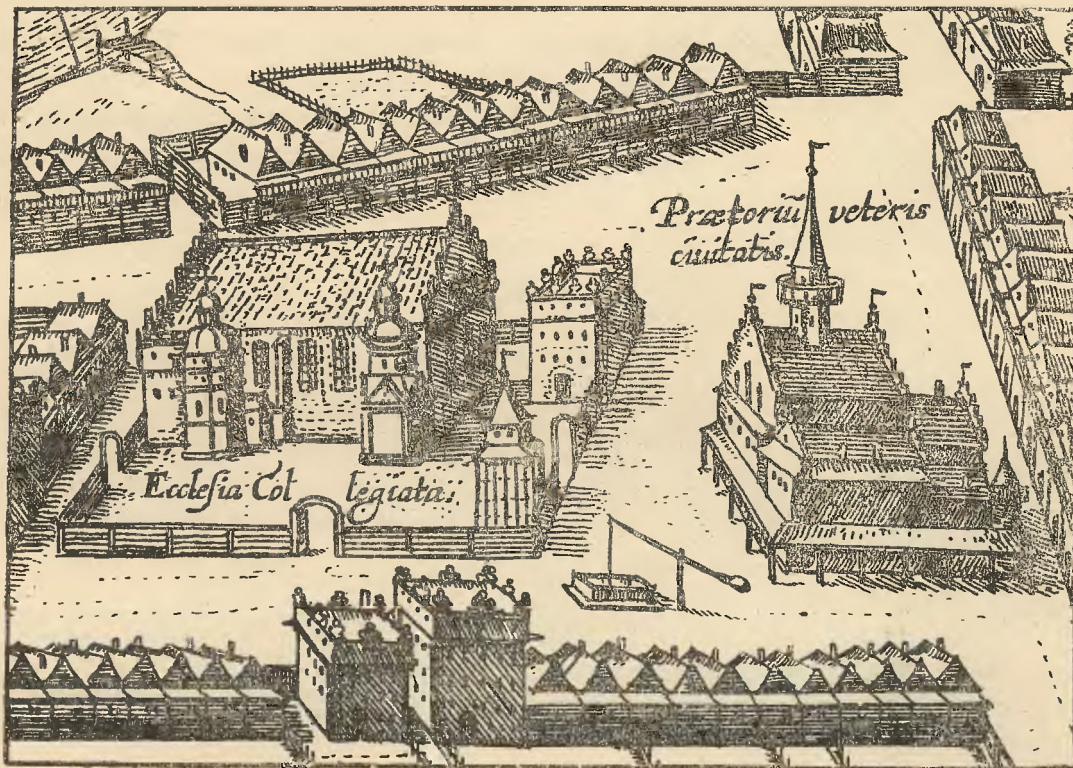 Prætoriũ veteris
ciuitatis.
Ecclesia Col legiata.